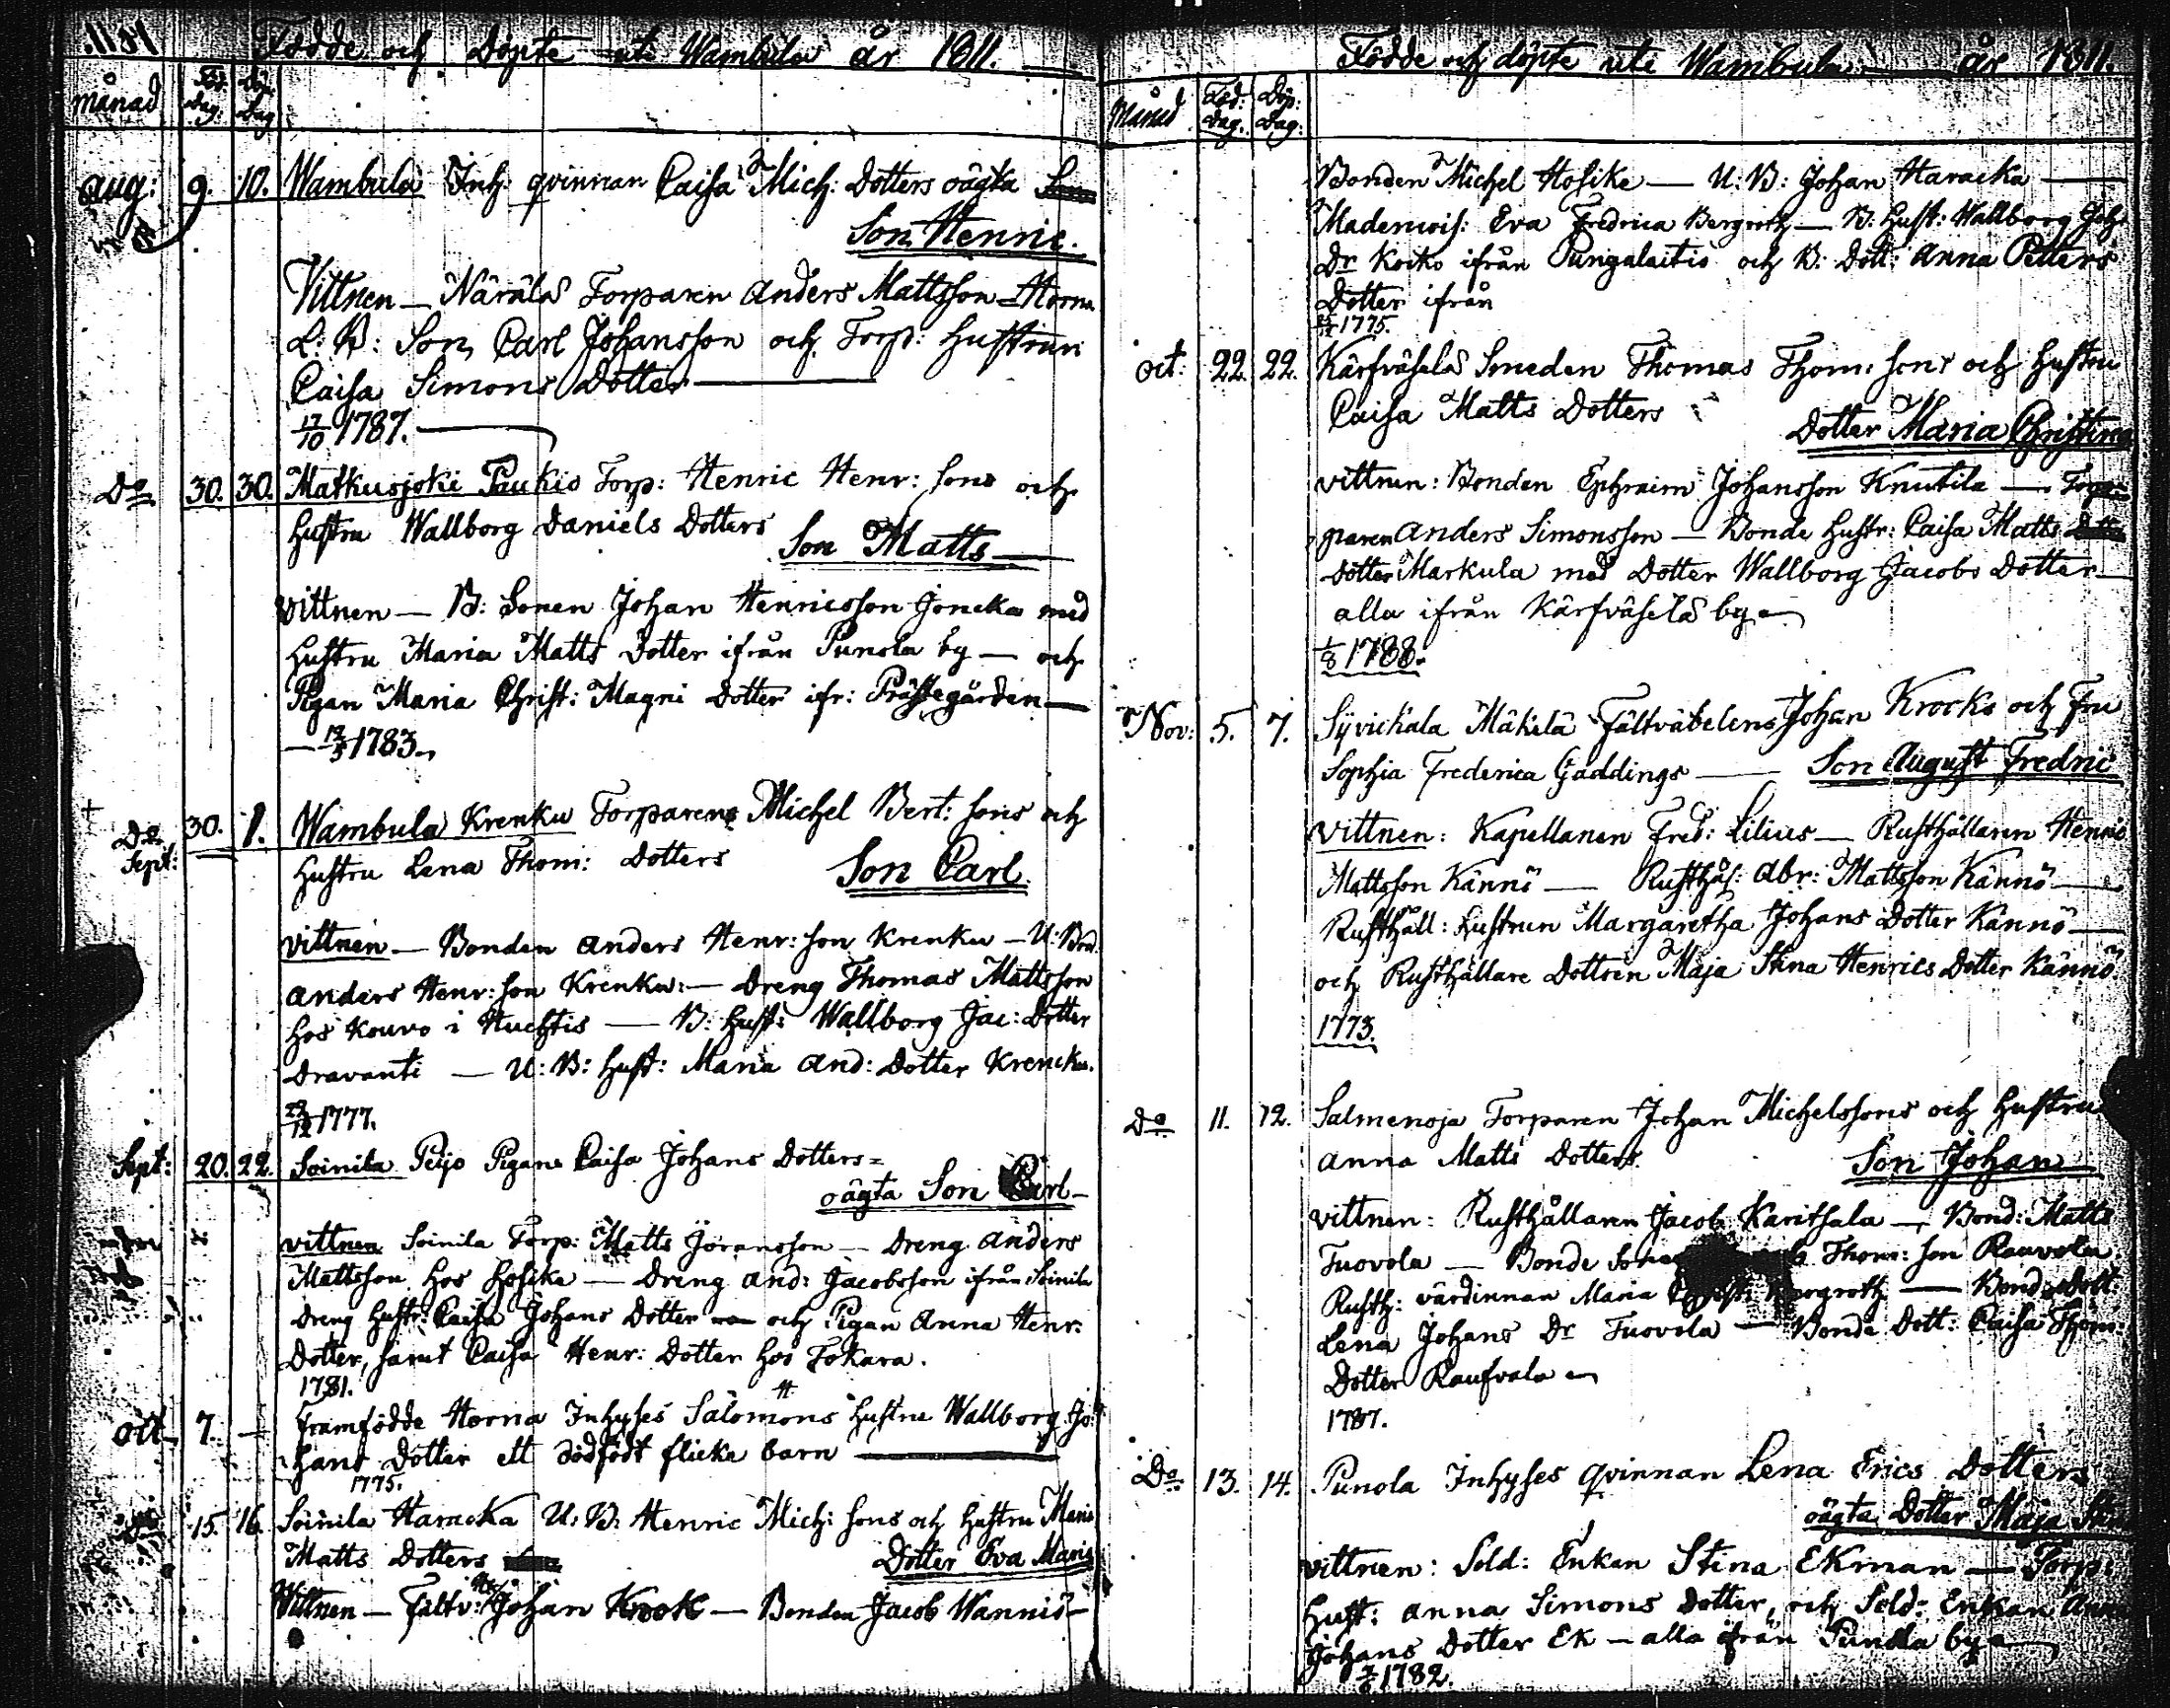 Födde och Döpte uti Wambula år 1811.
månad Föd: Dag: Döp: Dag
aug: 9. 10. Wambula Inh. qvinnan Caisa Mich: Dotters oägta
Son Henric.
Vittnen — Närälä Torparen Anders Mattsson Horna
L: B: Son, Carl Johansson och Torp: Hustrun
Caisa Simons Dotter —
17/10 1787. —
Do 30. 30. Matkusjoki Paukio Torp: Henric Henr: sons och
Hustru Wallborg Daniels Dotters
Son Matts —
Vittnen — B: Sonen Johan Henricsson Joncka med
Hustru Maria Matts Dotter ifrån Punola by — och
Pigan Maria Christ: Magni Dotter ifr: Prästegården —
1783.
Do Sept: 30. 1. Wambula Krenku Torparens Michel Bert: sons och
Hustru Lena Thom: Dotters
Son Carl.
vittnen — Bonden Anders Henr: son Krenku — U: Bond
Anders Henr: son Krenku: — Dreng Thomas Mattsson
hos Kouvo i Huchtis — B: Hust: Wallborg Jac: Dotter
Dravanti — U: B: Hust: Maria And: Dotter Krencku.
29/12 1777.
Sept: 20. 22. Soinila Peijo Pigans Caisa Johans Dotters =
oägta Son Carl —
vittnen Soinila Torp: Matts Jöransson — Dreng Anders
Mattsson hos Hosike — Dreng And: Jacobsson ifrån Soinila
Dreng Hustr: Caisa Johans Dotter och Pigan Anna Henr:
Dotter, samt Caisa Henr: Dotter hos Tokara.
1781.
Oct 7. — Framfödde Horna Inhyses Salomons Hustru Wallborg Jo-
hans Dotter ett dödfödt flicke barn —
1775.
15. 16. Soinila Haracka U: B: Henric Mich: sons och Hustru Maria
Matts Dotters Dotter Eva Maria
Vittnen — Fältv: Johan Krook — Bonden Jacob Wannis —
Födde och döpte uti Wambula år 1811.
Månad Föd: Dag. Döp: Dag:
Bonden Michel Hosike — U: B: Johan Haracka —
Mademois: Eva Fredrica Bergroth — B: Hust: Wallborg Joh:
Dr Koiko ifrån Pungalaitio och B: Dott: Anna Petters
Dotter ifrån
1775.
Oct: 22. 22. Kärfväselä Smeden Thomas Thom: sons och Hustru
Caisa Matts Dotters
Dotter Maria Christina
vittnen: Bonden Ephraim Johansson Knutila —
paren Anders Simonsson — Bonde Hustr: Caisa Matts
Dotter Markula med Dotter Wallborg Jacobs Dotter —
alla ifrån Kärfväselä by
1/8 1788.
Nov: 5. 7. Syvickala Mäkilä Fältväbelens Johan Krooks och Fru
Sophia Frederica Gaddings — Son August Fredric
Vittnen: Kapellanen Fred: Lilius — Rusthållaren Henric
Mattsson Kännö — Rusthål: Abr: Mattsson Kännö —
Rusthåll: Hustrun Margaretha Johans Dotter Kännö —
och Rusthållare Dottren Maja Stina Henrics Dotter Kännö.
1773.
Do 11. 12. Salmenoja Torparen Johan Michelssons och Hustru
Anna Matts Dotters.
Son Johan
vittnen: Rusthållaren Jacob Karitsala — Bond: Matts
Tuovola — Bonde Thom: son Rauvola.
Rusth: värdinnan Maria — Bonde Dott:
Lena Johans Dr Tuovola — Bonde Dott: Caisa Thom:
Dotter Raufvala
1787.
Do 13. 14. Punola Inhyses qvinnan Lena Erics Dotters
oägta Dotter Maja
vittnen: Sold: Enkan Stina Ekman — Torp:
Hust: Anna Simons Dotter, och Sold: Enkan Anna
Johans Dotter Ek — alla ifrån Punola by
1782.